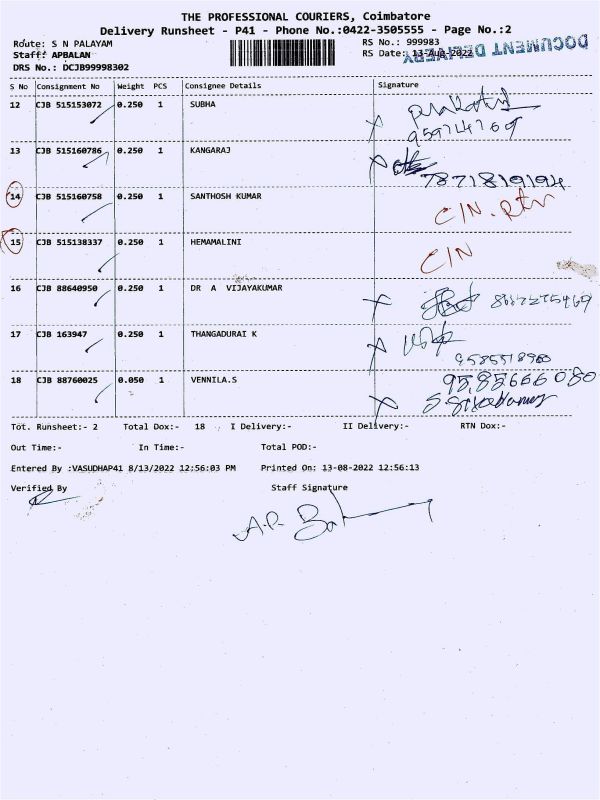 THE PROFESSIONAL COURIERS, Coimbatore
Delivery Runsheet - P41 - Phone No.:0422-3505555 - Page No.:2
Route: S N PALAYAM RS No.: 999983
Staff: APBALAN RS Date: 13-Aug-2022 DOCUMENT DELIVERY
DRS No.: DCJB99998302
S No Consignment No Weight PCS Consignee Details Signature
12 CJB 515153072 0.250 1 SUBHA
13 CJB 515160786 0.250 1 KANGARAJ
7871819194
14 CJB 515160758 0.250 1 SANTHOSH KUMAR C/N. Rtn
15 CJB 515138337 0.250 1 HEMAMALINI C/N
16 CJB 88640950 0.250 1 DR A VIJAYAKUMAR
17 CJB 163947 0.250 1 THANGADURAI K
18 CJB 88760025 0.050 1 VENNILA.S
Tot. Runsheet:- 2 Total Dox:- 18 I Delivery:- II Delivery:- RTN Dox:-
Out Time:- In Time:- Total POD:-
Entered By :VASUDHAP41 8/13/2022 12:56:03 PM Printed On: 13-08-2022 12:56:13
Verified By Staff Signature
A.P. Bal